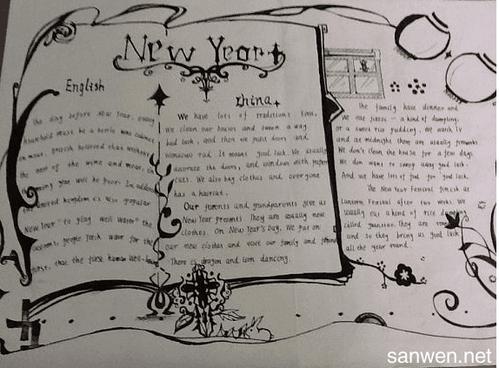 New Year
English
The day before New Year, every
household must be a bottle wine
in meat, British believed that without
the rest of the wine and meat, in
coming year will be poor. In addition
the United Kingdom is also popular
New Year "to play well water" the
customs people fetch water for the
first, that the first
China
We have lots of traditions
We clean our houses and sweep away
bad luck, and then we paint doors and
windows red. It means good luck. We usually
decorate the doors and windows with paper
cuts. We also big clothes and everyone
has a haircut.
Our parents and grandparents give us
New Year presents They are usually new
clothes. On New Year's Day. We put on
our new clothes and visit our family and
There is dragon and lion dancing.
The family have dinner and
we eat jiaozi - a kind of dumpling,
or a sweet rice pudding, we watch TV
and at midnight there are usually fireworks
We don't clean the house for a few days.
We don wants to sweep away good luck
And we have lots of food for good luck.
The New Year Festival finish at
Lantern Festival after two weeks. We
usually eat a kind of rice
called yuanxiao. They are
and so they bring us good luck
all the year round.
sanwen.net